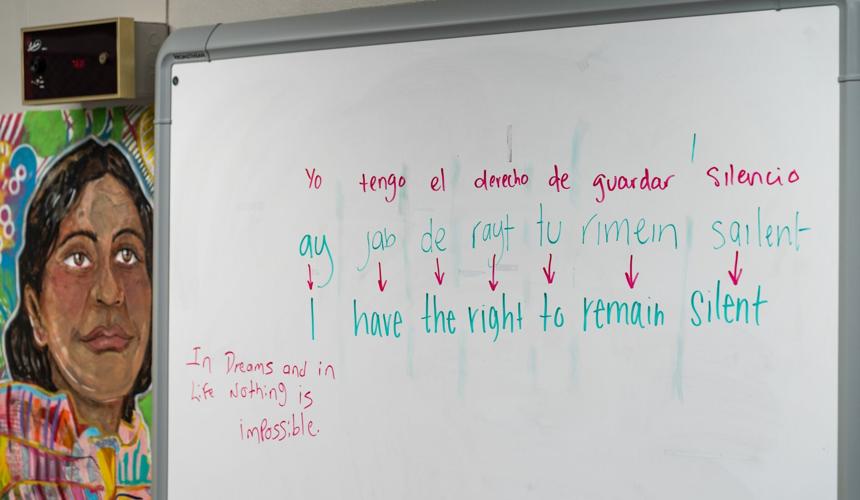 Yo tengo el derecho de guardar silencio
ay jab de rayt tu rimein sailent
I have the right to remain silent
In Dreams and in
Life Nothing is
impossible.